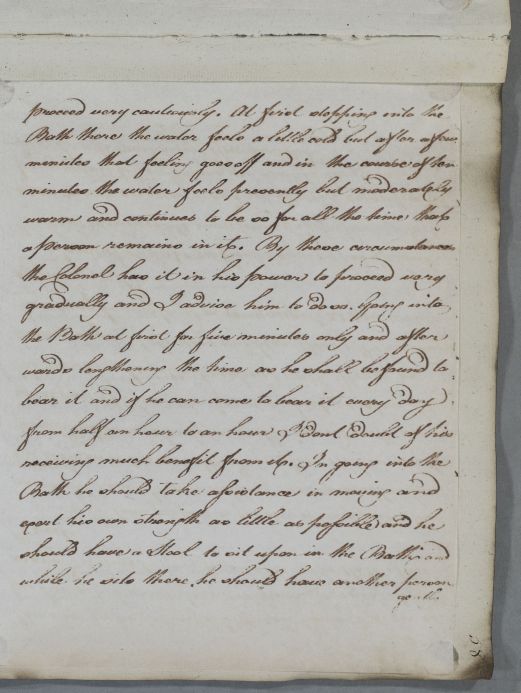 proceed very cautiously. At first stepping into the
Bath there the water feels a little cold but after a few
minutes that feeling goes off and in the course of ten
minutes the water feels presently but moderately
warm and continues to be so for all the time that
a person remains in it. By these circumstances
the Colonel has it in his power to proceed very
gradually and I advise him to do so. Going into
the Bath at first for five minutes only and after
wards lengthening the time as he shall be found to
bear it and if he can come to bear it every day
from half an hour to an hour I dont doubt of his
receiving much benefit from it. In going into the
Bath he should take assistance in moving and
exert his own strength as little as possible and he
should have a Stool to sit upon in the Bath and
while he sits there he should have another person